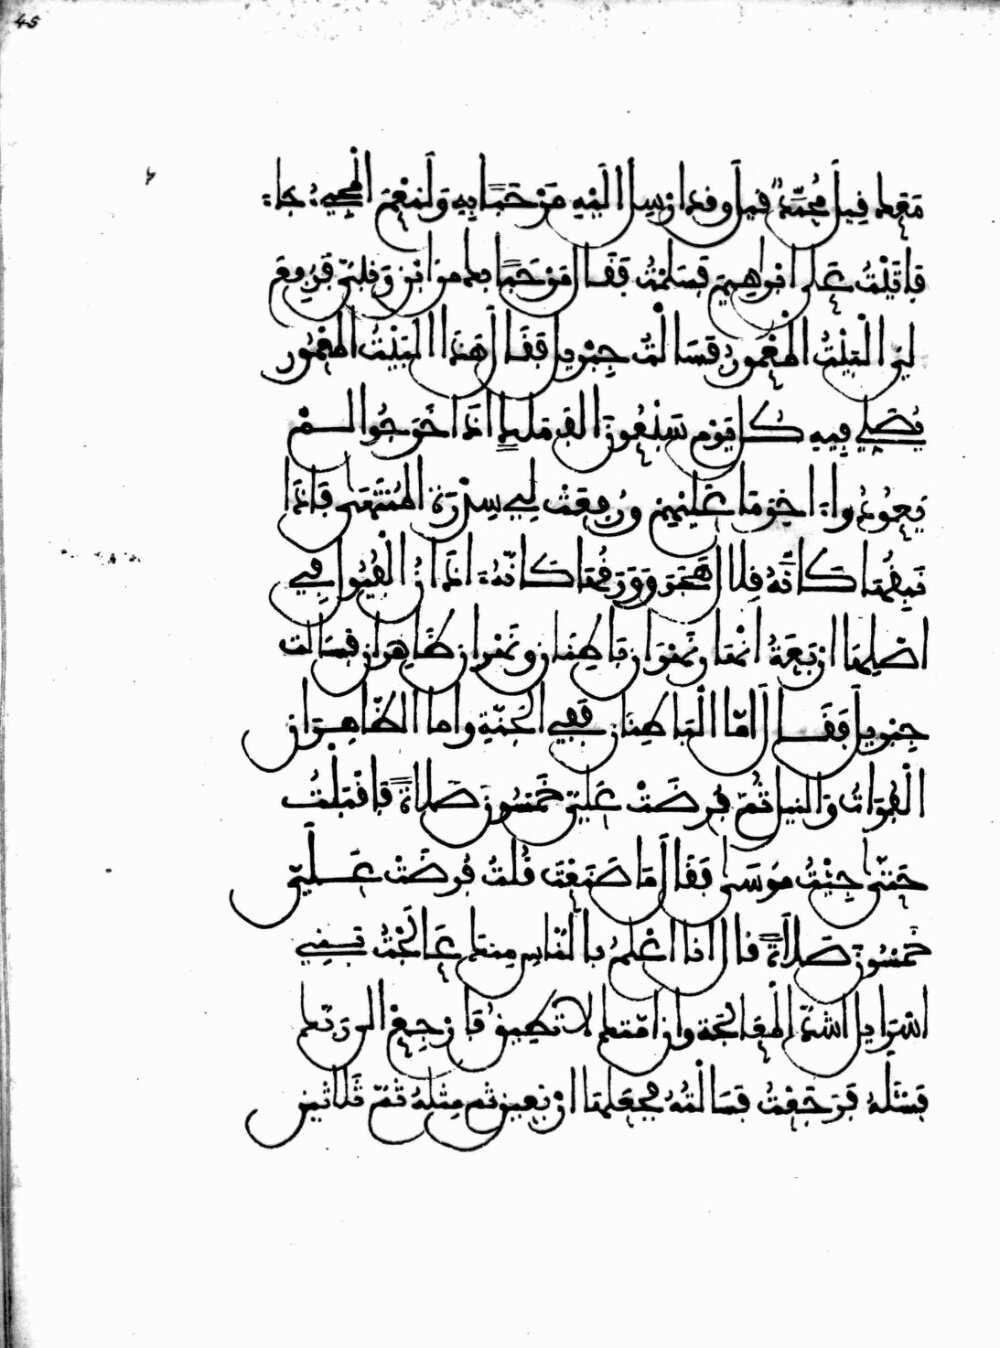 45
مَعَكَ فِيلَ مُحَمَّدٌ فِيلَ وَقَدْ ارْسِلَ الَيْهِ مَرْحَبًا بِهِ وَلَنِعْمَ الْمَجِيءُ جَاءَ
فَاتَيْتُ عَلَى ابْرَاهِيمَ فَسَلَّمْتُ فَقَالَ مَرْحَبًا بِكَ مِنَ ابْنٍ وَنَبِيّ فَرُفِعَ
لِيَ الْبَيْتُ الْمَعْمُورُ فَسَالْتُ جِبْرِيلَ فَقَالَ هَذَا الْبَيْتُ الْمَعْمُورُ
يُصَلِّي فِيهِ كُلَّ يَوْمٍ سَبْعُونَ الْفَ مَلَكٍ اذَا خَرَجُوا لَمْ
يَعُودُوا اخِرَ مَا عَلَيْهِمْ وَرُفِعَتْ لِي سِدْرَةُ الْمُنْتَهَى فَاذَا
نَبِقُهَا كَأَنَّهُ قِلَالُ هَجَرَ وَوَرَقُهَا كَانَّهُ اذَانُ الْفُيُولِ فِي
اصْلِهَا ارْبَعَةُ انْهَارٍ نَهْرَانِ بَاطِنَانِ وَنَهْرَانِ ظَاهِرَانِ فَسَالْتُ
جِبْرِيلَ فَقَالَ أَمَّا الْبَاطِنَانِ فَفِي الْجَنَّةِ وَامَّا الظَّاهِرَانِ
الْفُرَاتُ وَالنِّيلُ ثُمَّ فُرِضَتْ عَلَيَّ خَمْسُونَ صَلَاةً فَاقْبَلْتُ
حَتَّى جِئْتُ مُوسَى فَقَالَ مَا صَنَعْتَ قُلْتُ فُرِضَتْ عَلَيَّ
خَمْسُونَ صَلَاةً قَالَ انَا اعْلَمُ بِالنَّاسِ مِنْكَ عَالَجْتُ بَنِي
اسْرَايِلَ اشَدَّ الْمُعَالَجَةِ وَانَّ امَّتَكَ لَا تُطِيقُ فَارْجِعْ الَى رَبِّكَ
فَسْئَلْهُ فَرَجَعْتُ فَسَالْتُهُ فَجَعَلَهَا ارْبَعِينَ ثُمَّ مِثْلَهُ ثُمَّ ثَلَاثِينَ